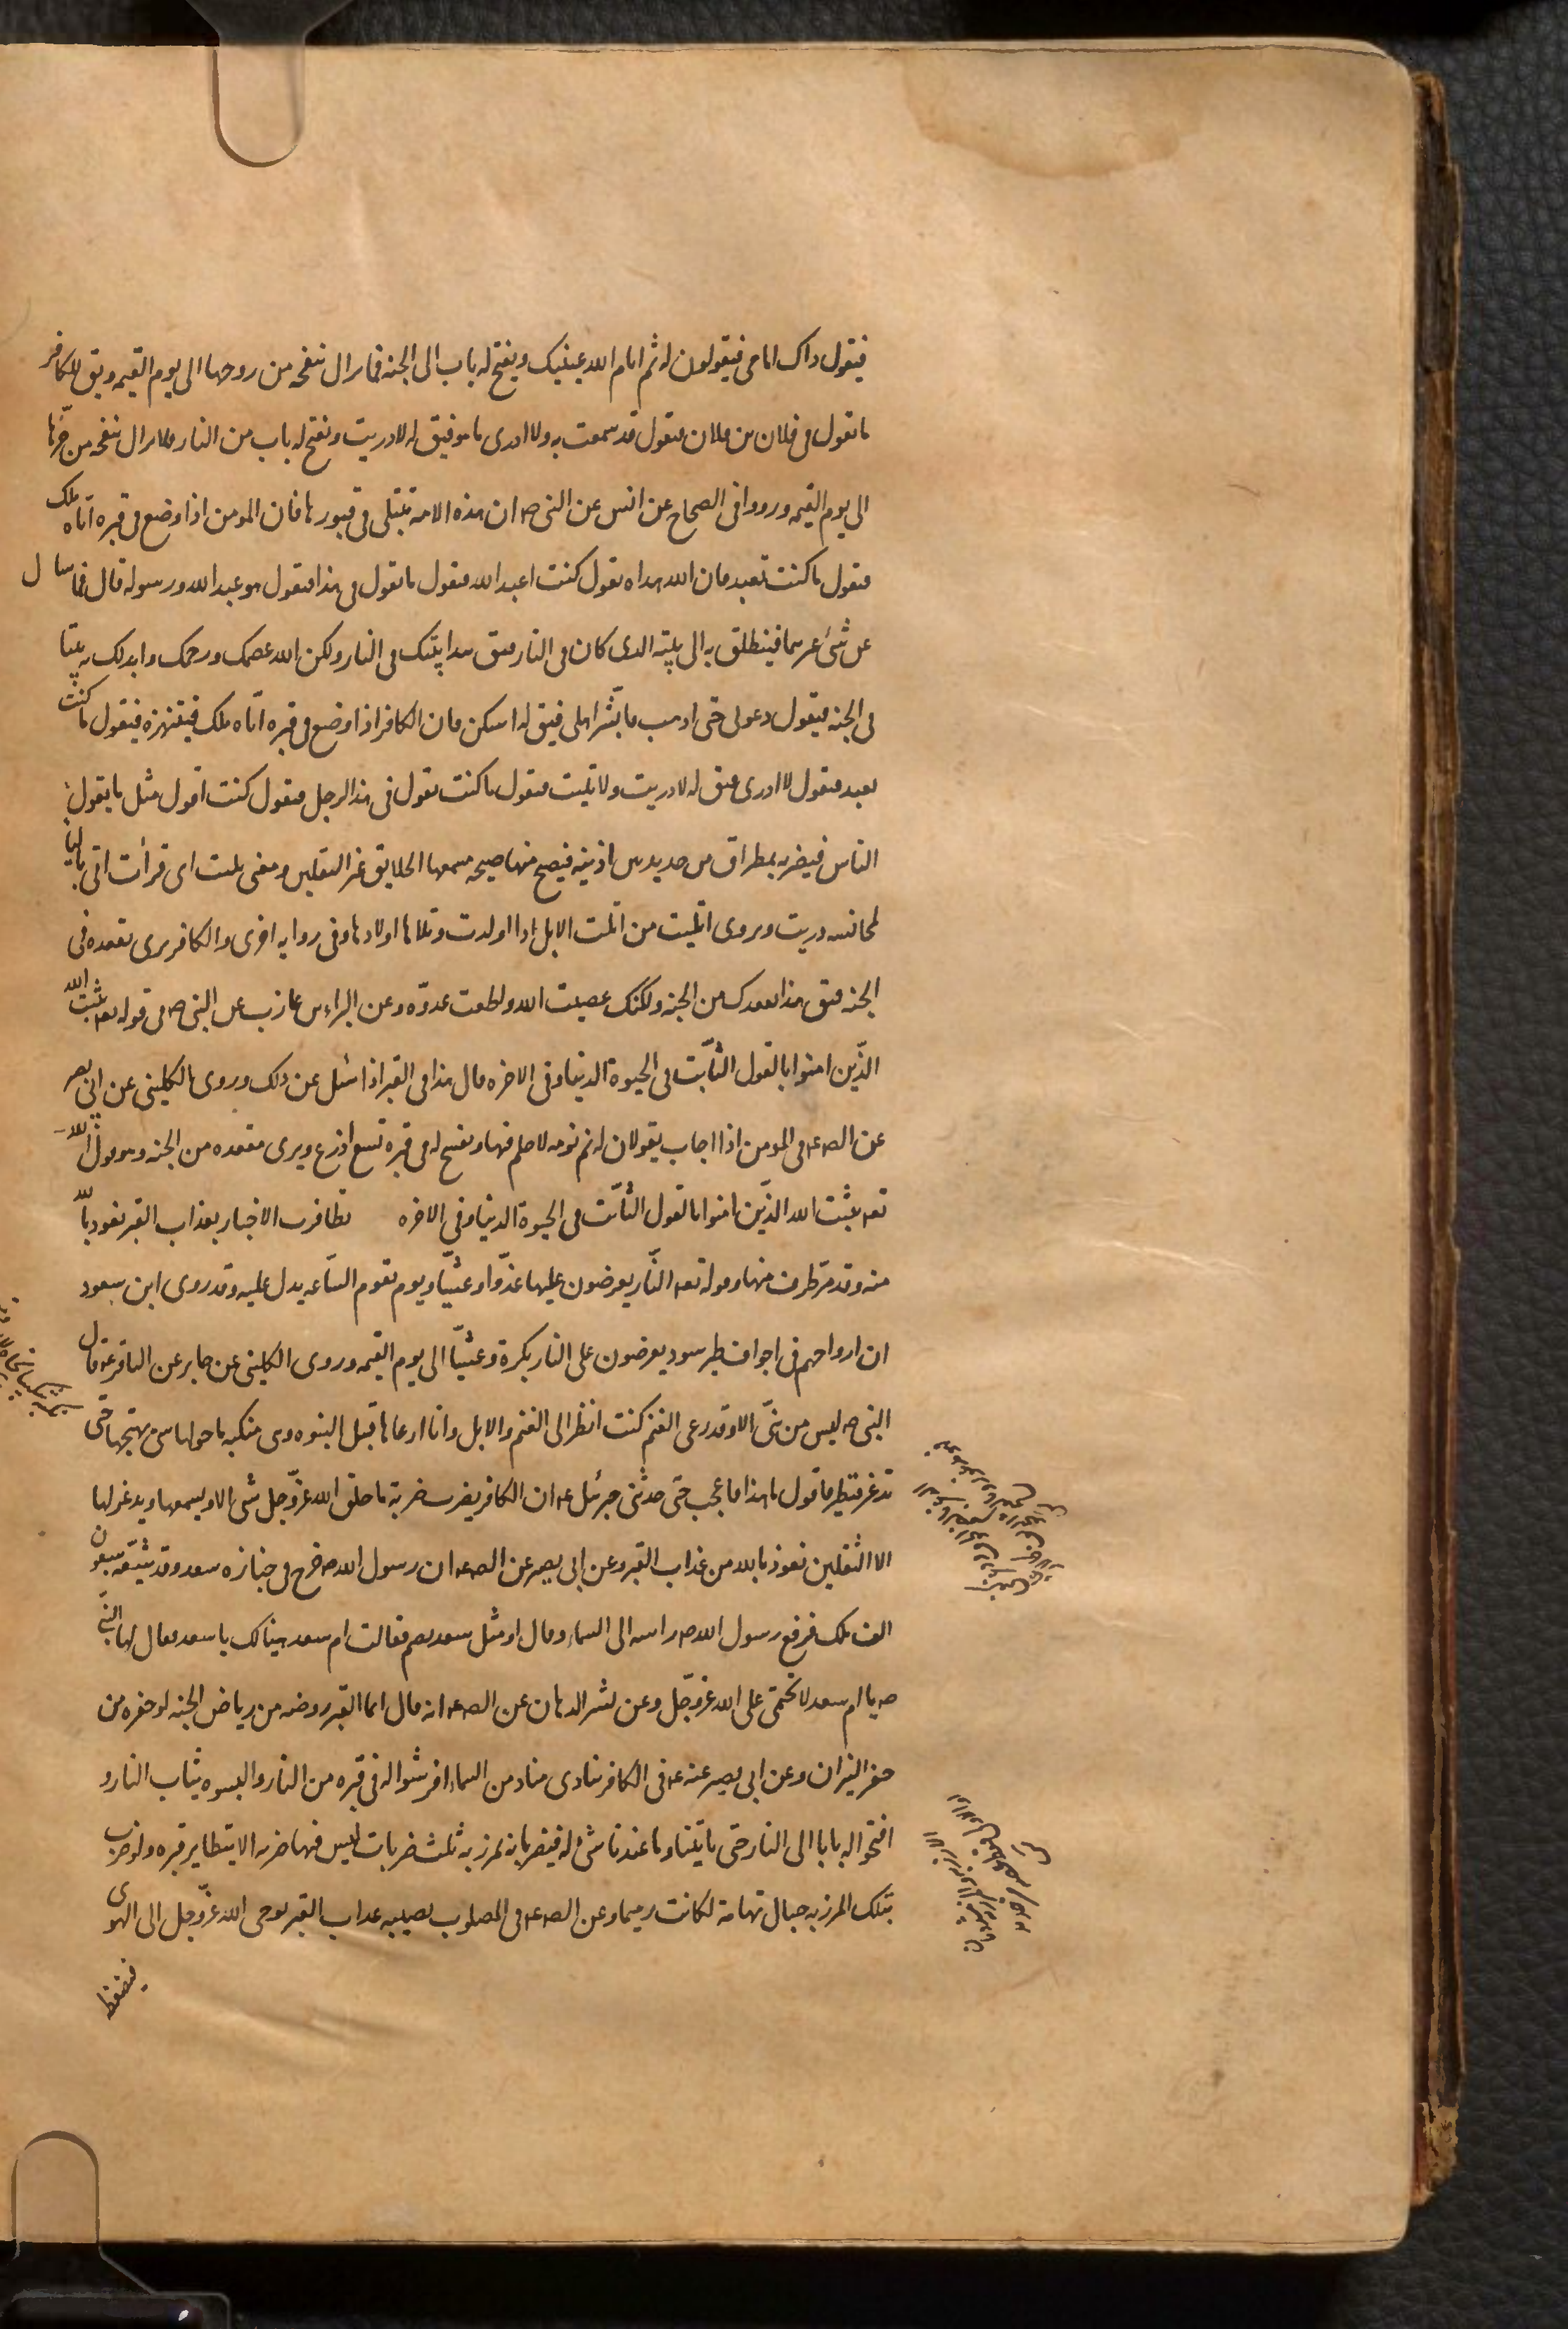 فيقول ذاك امامى فيقولون له نم انام الله عينيك ويفتح له باب الى الجنة فما يزال تنفحه من روحها الى يوم القيمه ويق للكافر
ما تقول فى فلان بن فلان فيقول قد سمعت به ولا ادرى ما هو فيق له لا دريت ويفتح له باب من النار ولا يزال تنفحه من حرّها
الى يوم القيمه ورووا فى الصحاح عن انس عن النبى ص ان هذه الامه تبتلى فى قبورها فان المومن اذا وضع فى قبره اتاه ملك
فيقول ما كنت تعبد فان الله هداه يقول كنت اعبد الله فيقول ما تقول فى هذا فيقول هو عبد الله ورسوله قال فما يسال
عن شئ غيرهما فينطلق به الى بيته الذى كان فى النار فيق هذا بيتك فى النار ولكن الله عصمك ورحمك وابدلك به بيتا
فى الجنه فيقول دعونى حتى اذهب فابشّر اهلى فيق له اسكن وان الكافر اذا وضع فى قبره اتاه ملك فينتهره فيقول ما كنت
تعبد فيقول لا ادرى فيق له لا دريت ولا تليت فيقول ما كنت تقول فى هذا الرجل فيقول كنت اقول مثل ما يقول
الناس فيضربه بمطراق من حديد بين اذنيه فيصيح منها صيحه يسمعها الخلايق غير الثقلين ومعنى تليت اى قرأت اتى بالياء
لمجانسه دريت ويروى اتليت من اتلت الابل اذا اولدت وتلاها اولادها وفى روايه اخرى والكافر يرى مقعده فى
الجنه فيق هذا مقعدك من الجنه ولكنك عصيت الله واطعت عدوّه وعن البراء بن عازب عن النبى ص فى قوله تعه يثبت الله
الذّين امنوا بالقول الثابت فى الحيوة الدنيا وفى الاخره قال هذا فى القبر اذا سئل عن ذلك وروى الكلينى عن ابى بصير
عن الص ع فى المومن اذا اجاب يقولان له نم نومه لا حلم فيها ويفسح له فى قبره تسع اذرع ويرى مقعده من الجنه وهو قول الله
تعه يثبت الله الذّين امنوا بالقول الثابت فى الحيوة الدنيا وفى الاخره تظافرت الاخبار بعذاب القبر نعوذ بالله
منه وقد مرّ طرف منها وقوله تعه النّار يعرضون عليها غدوّا وعشيّا ويوم تقوم السّاعه يدل عليه وقد روى ابن مسعود
ان ارواحهم فى اجواف طير سود يعرضون على النار بكرة وعشيّا الى يوم القيمه وروى الكلينى عن جابر عن الباقر ع قال
النبى ص ليس من نبىّ الا وقد رعى الغنم كنت انظر الى الغنم والابل وانا ارعاها قبل النبوه وهى متمكنه ما حولها شئ يهيّجها حتّى
تذعر فتطير فاقول ما هذا فاعجب حتى حدثنى جبرئيل ع ان الكافر يضرب ضربة ما خلق الله عزّ وجل شئ الا ويسمعها ويذعر لها
الا الثقلين نعوذ بالله من عذاب القبر وعن ابى بصير عن الص ع ان رسول الله ص خرج فى جنازه سعد وقد شيّعه سبعون
الف ملك فرفع رسول الله ص راسه الى السماء وقال او مثل سعد يضم فقالت ام سعد هنيئا لك يا سعد فقال لها النبى
ص يا ام سعد لا تحتمى على الله عزّ وجلّ وعن بشر الدهان عن الص ع انه قال انما القبر روضه من رياض الجنه او حفره من
حفر النيران وعن ابى بصير عنه ع فى الكافر ينادى مناد من السماء افرشوا له فى قبره من النار والبسوه ثياب النار و
افتحوا له بابا الى النار حتى ياتينا وما عندنا شرّ له فيضربانه بمرزبه ثلث ضربات ليس فيها ضربه الا يتطاير قبره ولو ضرب
بتلك المرزبه جبال تهامة لكانت رميما وعن الص ع فى المصلوب يصيبه عذاب القبر يوحى الله عزّ وجل الى الهوى
فيضغطه